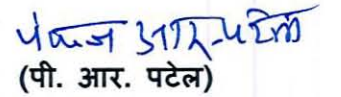 पंकज आर. पटेल
(पी. आर. पटेल)